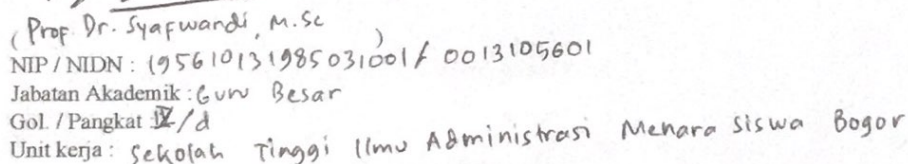 (Prof. Dr. Syafwandi, M.Sc)
NIP / NIDN : 195610131985031001 / 0013105601
Jabatan Akademik : Guru Besar
Gol. / Pangkat : IV/d
Unit kerja : Sekolah Tinggi Ilmu Administrasi Menara Siswa Bogor